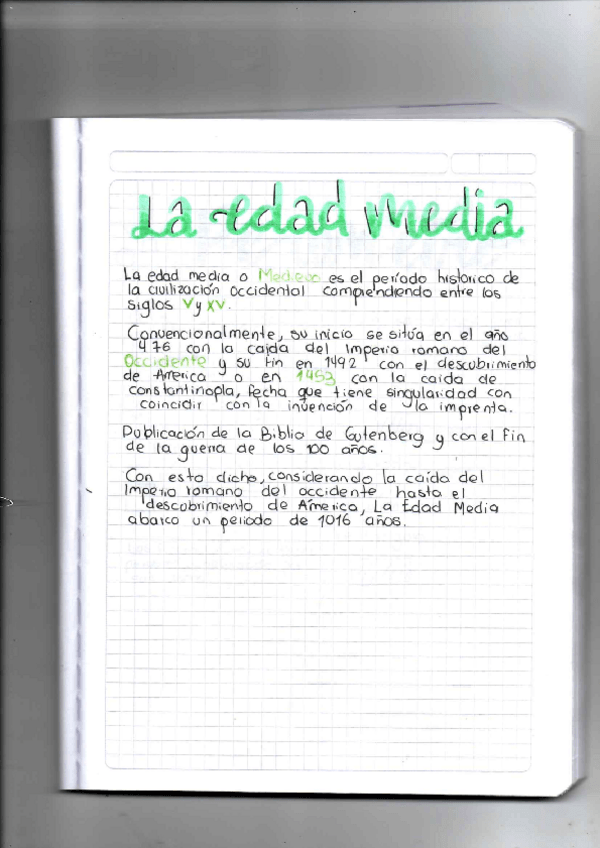 La edad media
La edad media o Medievo es el período historico de
la civilización occidental comprendiendo entre los
siglos V y XV.
Convencionalmente, su inicio se sitúa en el año
476 con la caida del Imperio romano del
Occidente y su fin en 1492 con el descubrimiento
de America o en 1453 con la caída de
constantinopla, fecha que tiene singularidad con
coincidir con la invención de la imprenta.
Publicación de la Biblio de Gutenberg y con el fin
de la guerra de los 100 años.
Con esto dicho, considerando la caída del
Imperio romano del occidente hasta el
descubrimiento de América, La Edad Media
abarco un periodo de 1016 años.